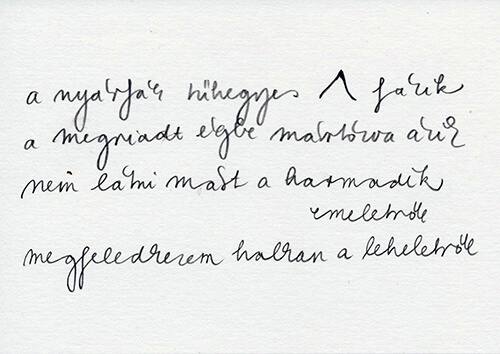 a nyárfák tűhegyes Λ fázik
a megriadt égbe mártózva ázik
nem látni mást a harmadik
emeletről
megfeledkezem halkan a leheletről